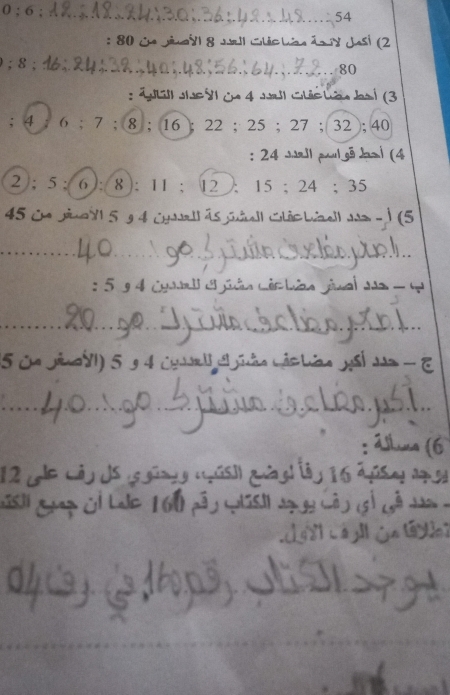 0 ; 6 ; 12 ; 18 ; 24 ; 30 ; 36 ; 42 ; 48 ....; 54
2) أكمل لائحة مضاعفات العدد 8 الأصغر من 80 :
0 ; 8 ; 16 ; 24 ; 32 ; 40 ; 48 ; 56 ; 64 ; 72 ... 80
3) أحط مضاعفات العدد 4 من الأعداد التالية :
; 4 ; 6 ; 7 ; 8 ; 16 ; 22 ; 25 ; 27 ; 32 ; 40
4) أحط قواسم العدد 24 :
2 ; 5 ; 6 ; 8 ; 11 ; 12 ; 15 ; 24 ; 35
5) أ- حدد المضاعفات المشتركة للعددين 4 و 5 الأصغر من 45
أصغر مضاعف مشترك هو 40
ب – حدد أصغر مضاعف مشترك للعددين 4 و 5 :
أصغر مضاعف مشترك هو 20
ج – حدد أكبر مضاعف مشترك للعددين 4 و 5 (الأصغر من 5
أكبر مضاعف مشترك هو 40
6) مسألة :
يوجد بمكتبة 16 رفاً لوضع الكتب، ويحتوي كل رف على 12
- حدد في أي رف يوجد الكتاب رقم 160 علما أن جميع الكت
نطلاقا من الرف الأول.
يوجد الكتاب رقم 160 في رف 04